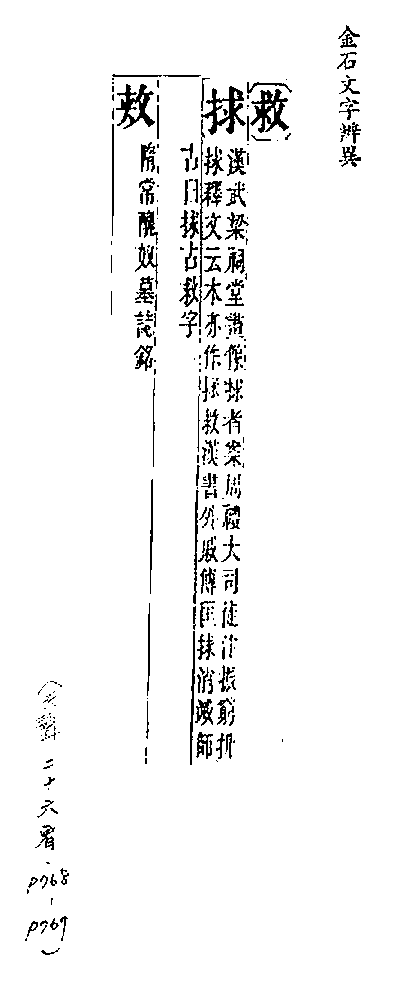 金石文字辨異
救
捄
漢武梁祠堂畫像捄者案周禮大司徒注振窮捄
捄釋文云本亦作捄救漢書外戚傳匡捄消滅師
古曰捄古救字
敖
隋常醜奴墓誌銘
二十六宥
p768
p769